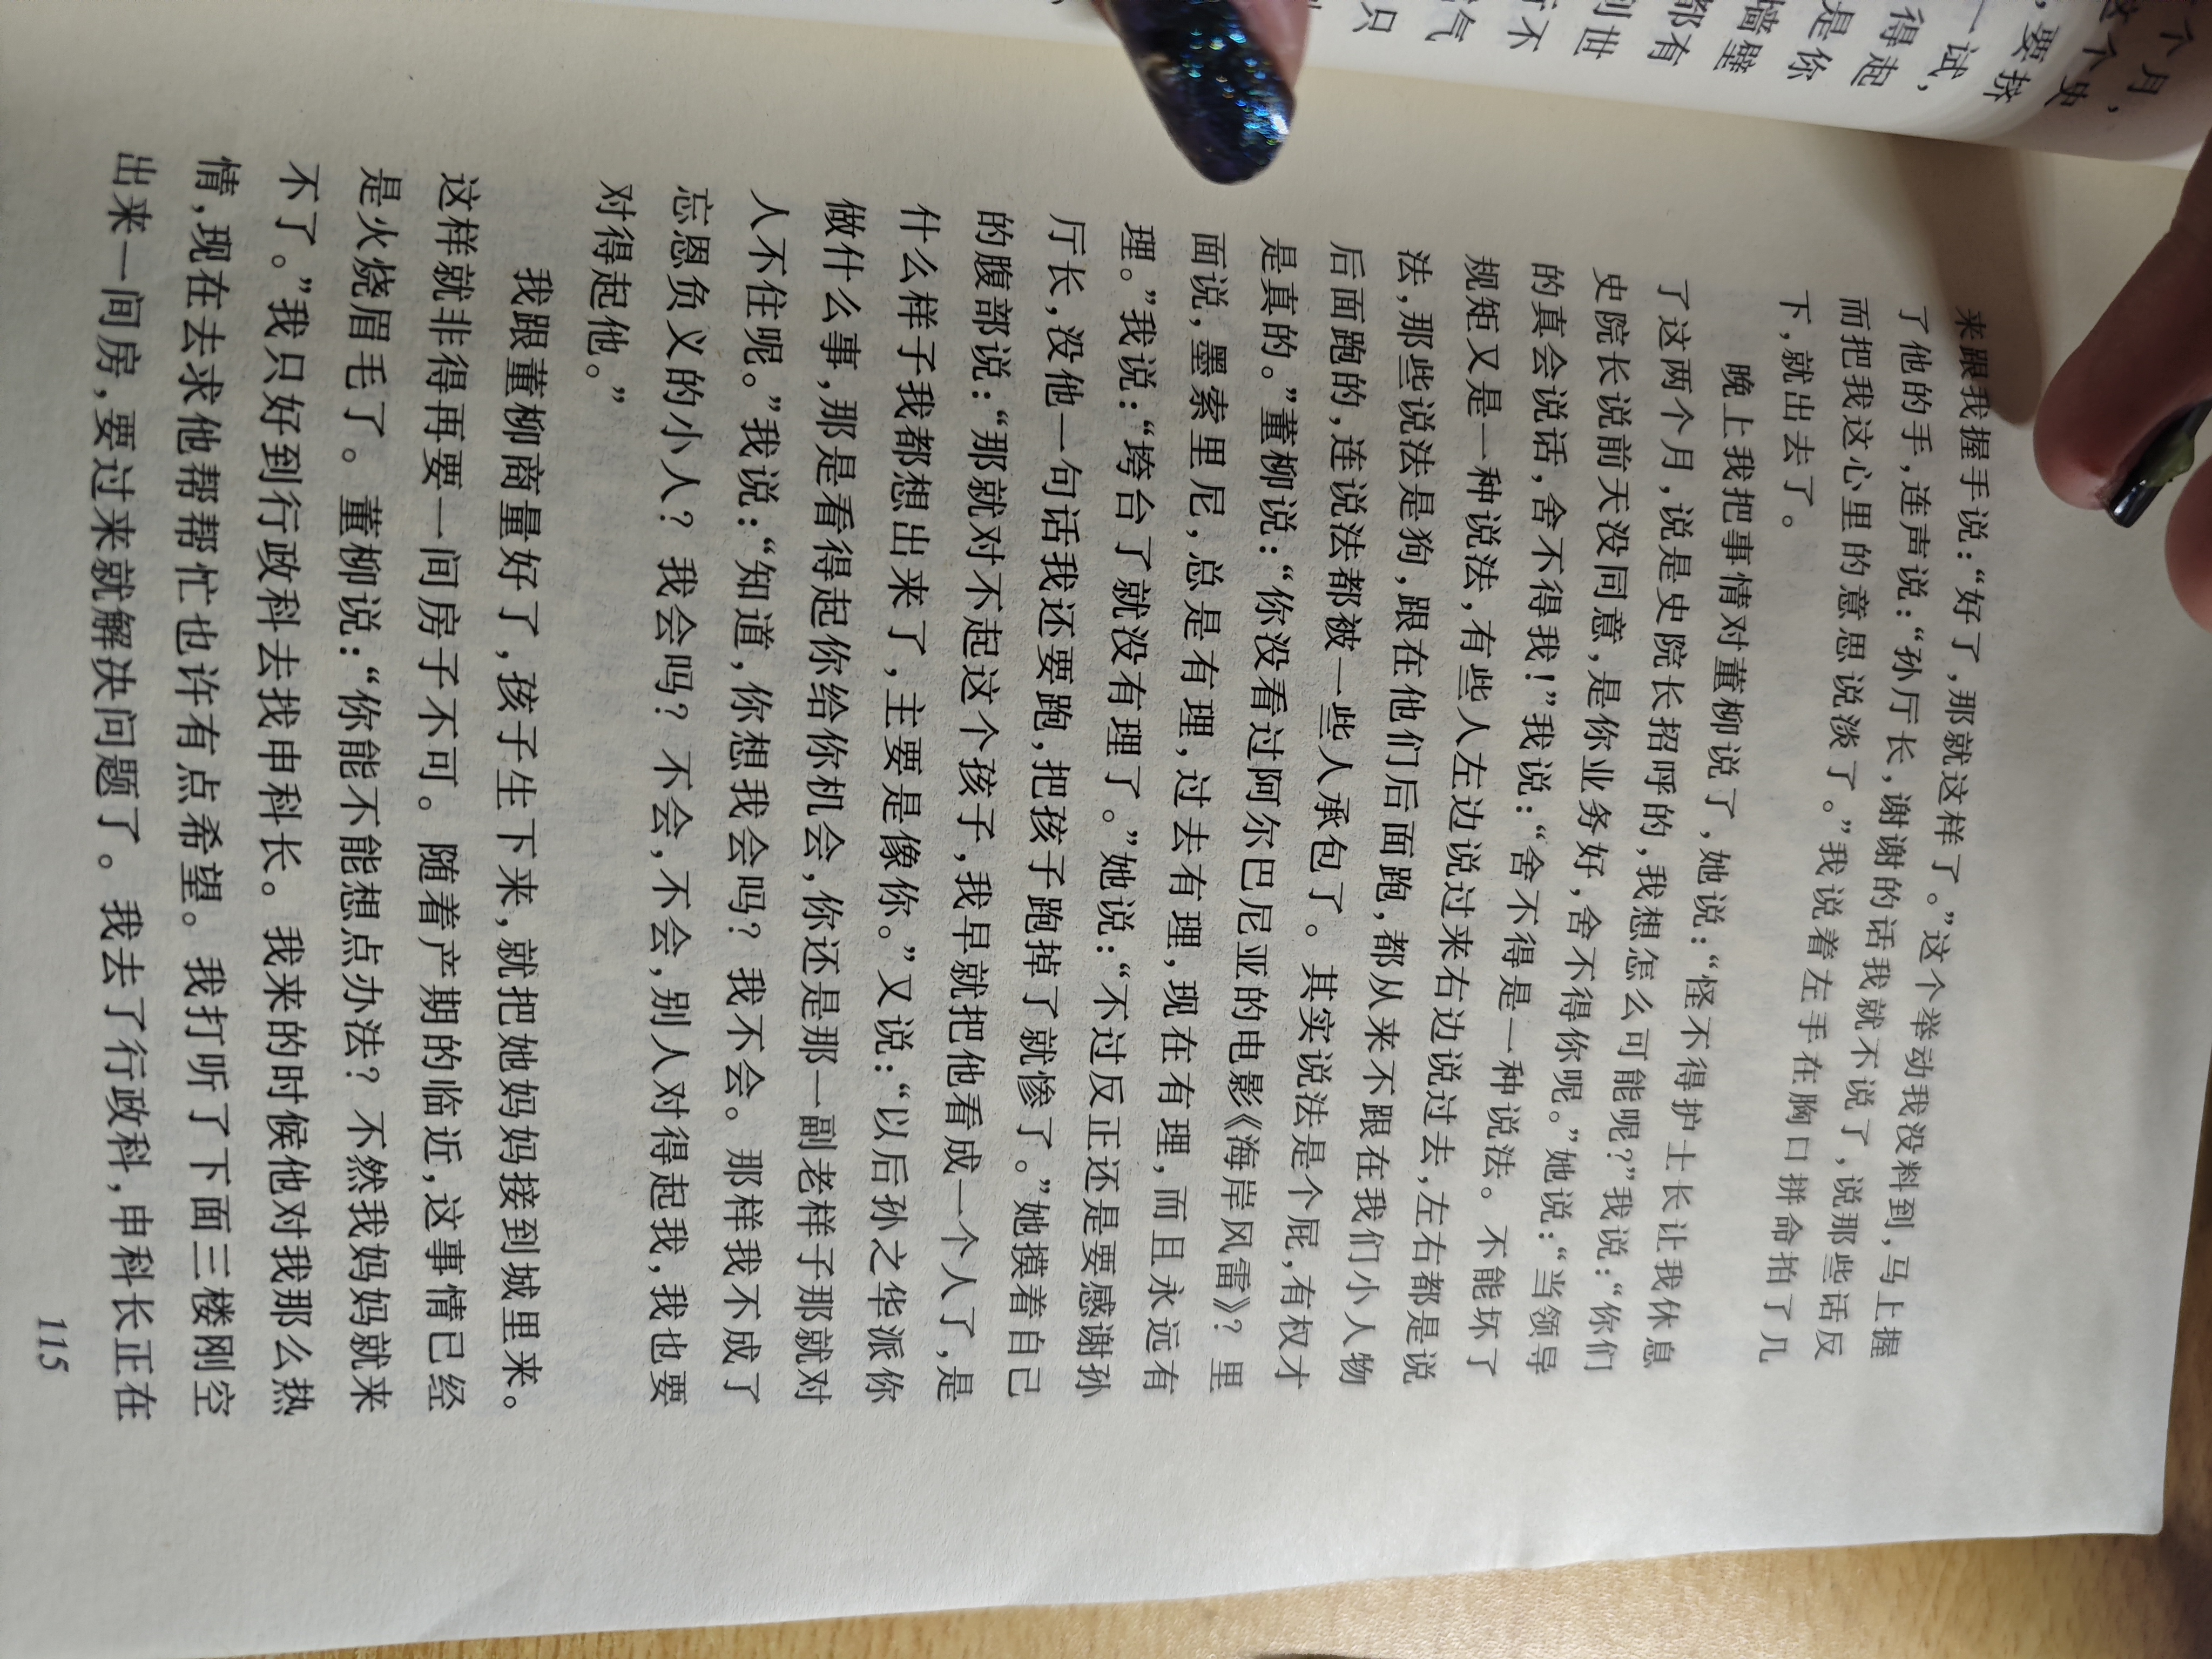 个月,
这个史
,要择
一试,
得起
是你
墙壁
都有
到世
行不
气
只
来跟我握手说:“好了,那就这样了。”这个举动我没料到,马上握
了他的手,连声说:“孙厅长,谢谢的话我就不说了,说那些话反
而把我这心里的意思说淡了。”我说着左手在胸口拼命拍了几
下,就出去了。
晚上我把事情对董柳说了,她说:“怪不得护士长让我休息
了这两个月,说是史院长招呼的,我想怎么可能呢?”我说:“你们
史院长说前天没同意,是你业务好,舍不得你呢。”她说:“当领导
的真会说话,舍不得我!”我说:“舍不得是一种说法。不能坏了
规矩又是一种说法,有些人左边说过来右边说过去,左右都是说
法,那些说法是狗,跟在他们后面跑,都从来不跟在我们小人物
后面跑的,连说法都被一些人承包了。其实说法是个屁,有权才
是真的。”董柳说:“你没看过阿尔巴尼亚的电影《海岸风雷》?里
面说,墨索里尼,总是有理,过去有理,现在有理,而且永远有
理。”我说:“垮台了就没有理了。”她说:“不过反正还是要感谢孙
厅长,没他一句话我还要跑,把孩子跑掉了就惨了。”她摸着自己
的腹部说:“那就对不起这个孩子,我早就把他看成一个人了,是
什么样子我都想出来了,主要是像你。”又说:“以后孙之华派你
做什么事,那是看得起你给你机会,你还是那一副老样子那就对
人不住呢。”我说:“知道,你想我会吗?我不会。那样我不成了
忘恩负义的小人?我会吗?不会,不会,别人对得起我,我也要
对得起他。”
我跟董柳商量好了,孩子生下来,就把她妈妈接到城里来。
这样就非得再要一间房子不可。随着产期的临近,这事情已经
是火烧眉毛了。董柳说:“你能不能想点办法?不然我妈妈就来
不了。”我只好到行政科去找申科长。我来的时候他对我那么热
情,现在去求他帮帮忙也许有点希望。我打听了下面三楼刚空
出来一间房,要过来就解决问题了。我去了行政科,申科长正在
115